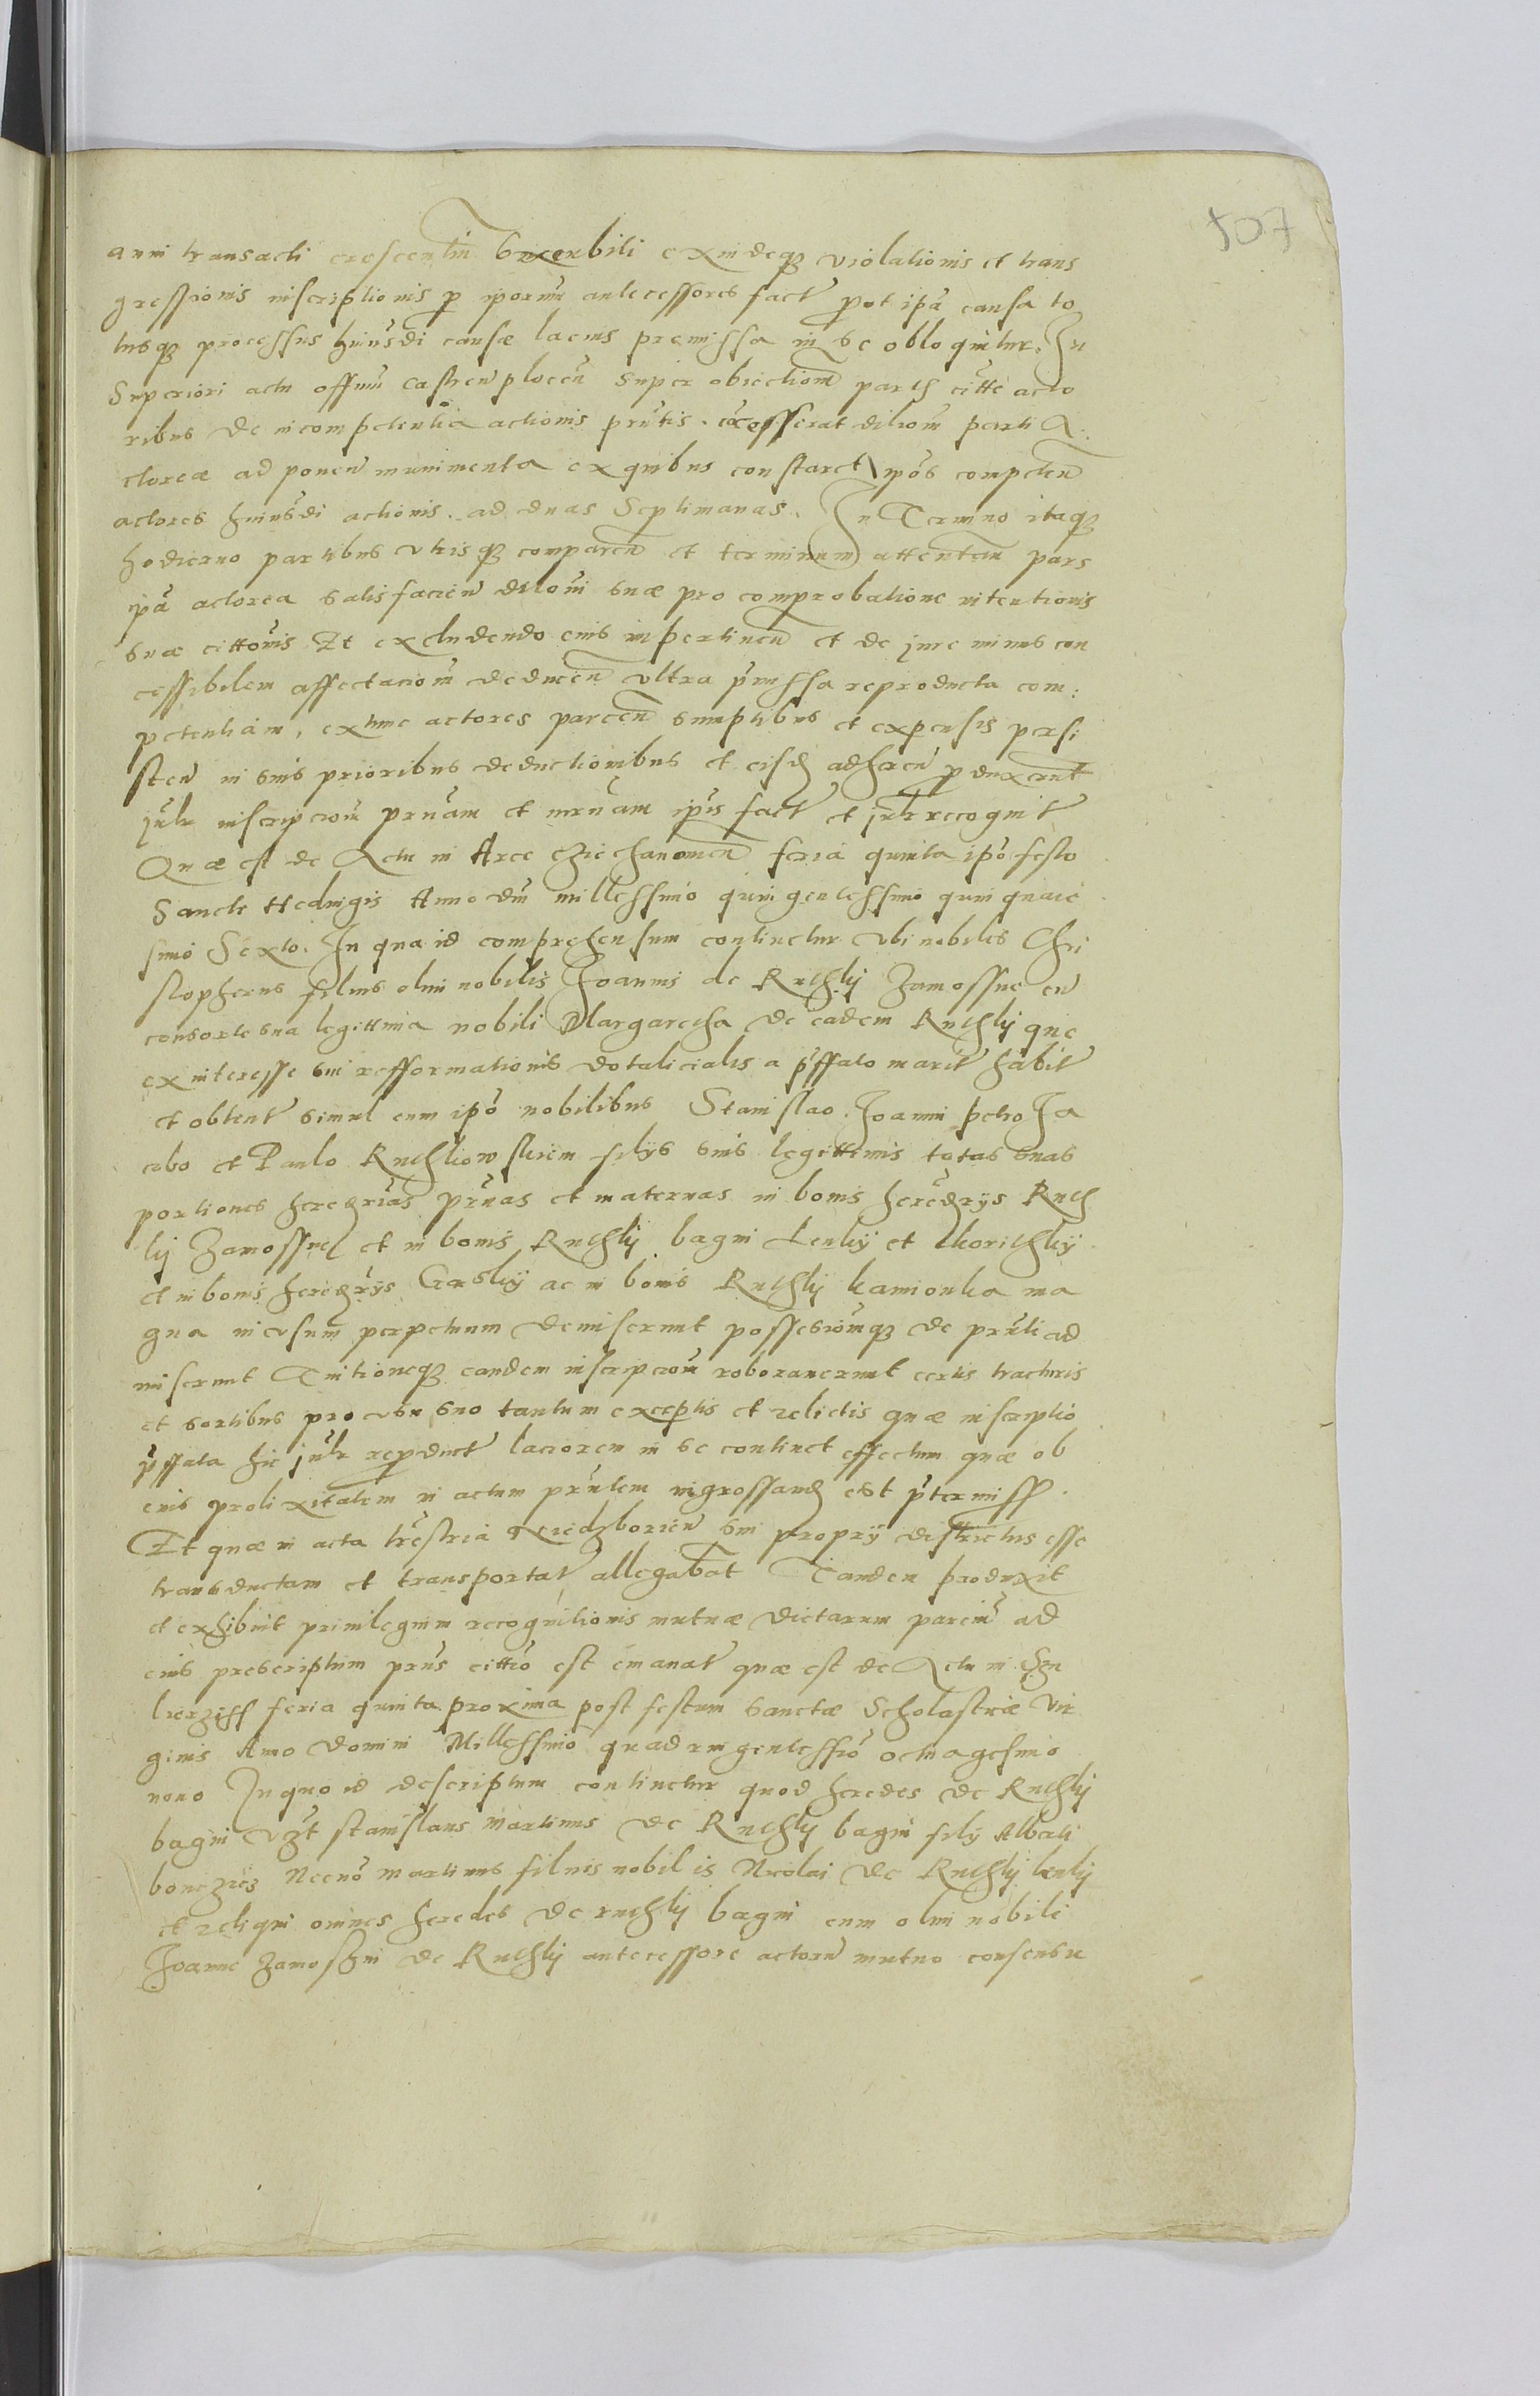 107
anni transacti crescentin exindeq violationis et trans
gressionis inscriptionis p ipsorum antecessores fact prot ipa causa to
tusq processus huiusdi causæ lacius premissa in se obloquitur. In
Superiori actu offium Castren plocen super obiectiom partis citte acto
ribus de incompetentia actionis prntis. cocesserat dilcom parti A
ctoreæ ad ponen munimenta ex quibus constaret ipos competen
actores huiusdi actionis. ad duas Septimanas. In Termino itaq
hodierno partibus vtrisq comparen et terminum attentan pars
ipa actorea satisfacien dilconi suæ pro comprobatione intentionis
suæ cittonis Et excludendo eius impertinen et de jure minus con
cessibilem affectaciom deducen vltra prmissa reproducta com:
petentiam, extunc actores parcen sumptibus et expensis persi
sten in suis prioribus deductionibus et eisd adheren pduxerunt
julr inscripciom prnam et mrnam ipis fact et julr recognit
Quæ est de Actu in Arce Cziechanomen feria quinta ipo festo
Sancte Hedwigis Anno dni millessimo quingentessimo quinquage
simo Sexto. In qua id comprehensum continetur vbi nobiles Chri
stopherus filius olim nobilis Joannis de Ruchlij Zamossne cu
consorte sua legittima nobili Margaretha de eadem Ruchlij que
ex interesse sui refformationis dotalicialis a pffato marit habit
et obtent simul cum ipo nobilibus Stanislao Joanni petro Ja
cobo et Paulo Ruchliowskiem filijs suis legittimis totas suas
portiones heredrias prnas et maternas in bonis heredrijs Ruch
lij Zamossne et in bonis Ruchlij bagni Lenkij et
et in bonis heredrijs ac in bonis Ruchlij kamionka ma
gna in vsum perpetuum demiserunt possessiomq de prnti ad
miserunt Tuitioneq eandem inscripciom roborauerunt certis tracturis
et sortibus pro vsu suo tantum exceptis et relictis quæ inscriptio
pffata hic julr repduct laciorem in se continet effectum quæ ob
eius prolixitatem in actum prntem ingrossand est ptermiss
Et quæ in acta trestria sui proprij districtus esse
transductam et transportat allegabat Tandem produxit
et exhibuit priuilegium recognitionis mutuæ dictarum parcium ad
eius prescriptum prns cittio est emanat quæ est de Actu in
feria quinta proxima post festum Sanctæ Scholasticæ Vir
ginis Anno domini Millessimo quadringentessio octuagesimo
nono In quo id descriptum continetur quod heredes de Ruchlij
bagni vzt stanislaus Martinus de Ruchlij bagni filij
Necno Martinus filius nobilis Nicolai de Ruchlij lenkij
et reliqui omnes heredes de ruchlij bagni cum olim nobili
Joanne Zamoschni de Ruchlij antecessore actoru mutuo consensu